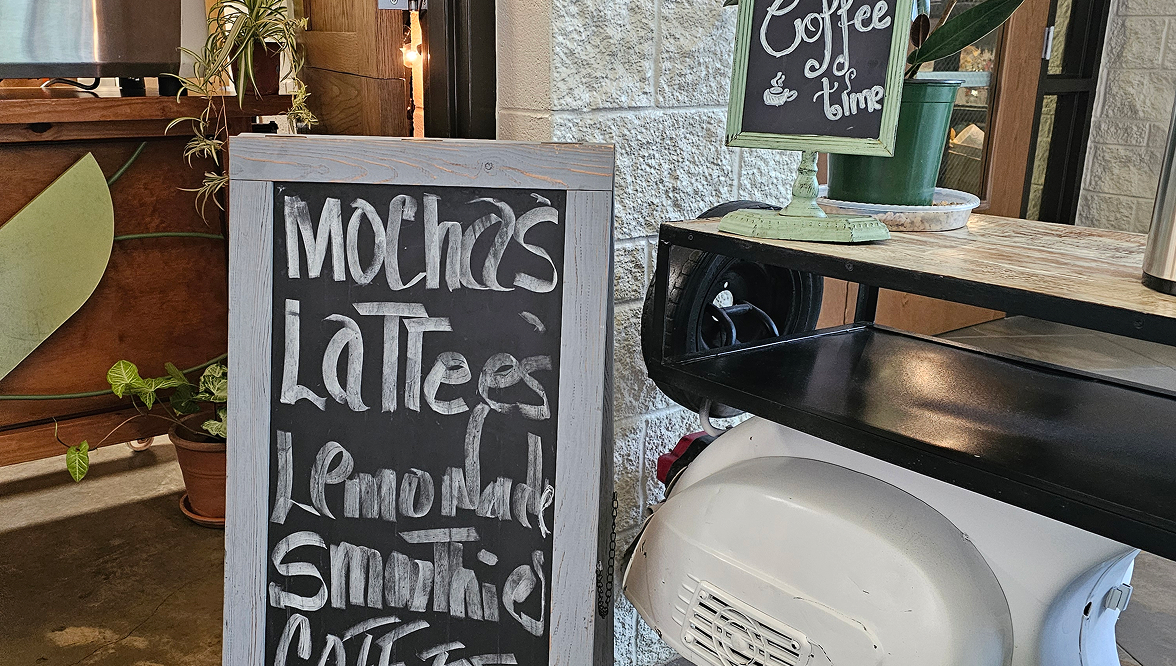 Coffee
time
Mocha's
LaTTe'es
Lemonade
Smoothies